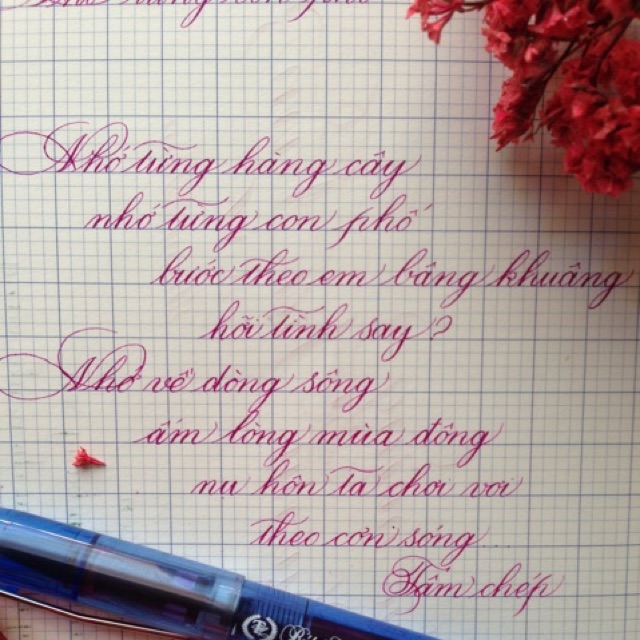 Nhớ từng hàng cây
nhớ từng con phố
bước theo em bâng khuâng
hỡi tình say?
Nhớ về dòng sông
ấm lòng mùa đông
nụ hôn ta chơi vơi
theo cơn sóng
Tầm chép